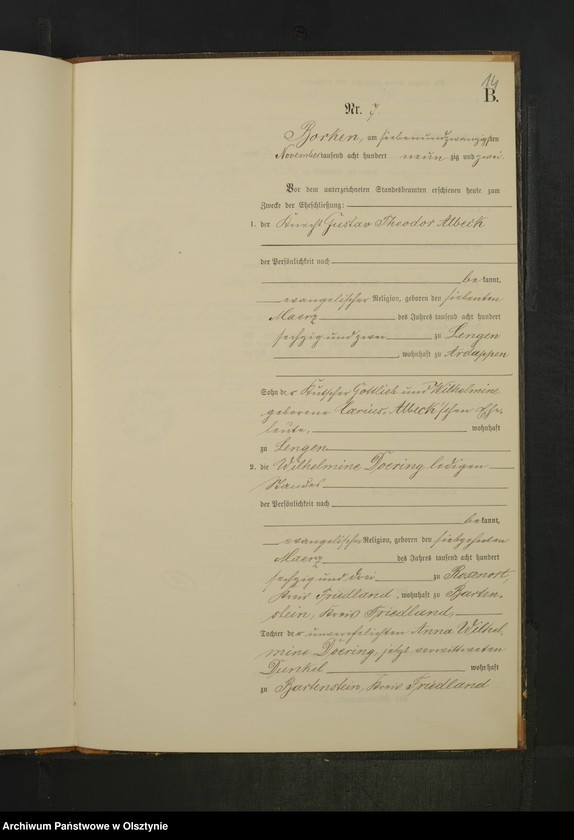 14
B.
Nr. 7.
Borken, am siebenundzwanzigsten
November tausend acht hundert neun zig und zwei.
Vor dem unterzeichneten Standesbeamten erschienen heute zum
Zwecke der Eheschließung:
1. der Knecht Gustav Theodor Albeck
der Persönlichkeit nach
be kannt,
evangelischer Religion, geboren den siebenten
Maerz des Jahres tausend acht hundert
sechzig und zwei zu Lengen
, wohnhaft zu Ardappen
Sohn des Kutscher Gottlieb und Wilhelmine
geborene Carius, Albeck'schen Ehe-
leute, wohnhaft
zu Lengen
2. die Wilhelmine Doering ledigen
Standes
der Persönlichkeit nach
be kannt,
evangelischer Religion, geboren den siebzehnten
Maerz des Jahres tausend acht hundert
sechzig und drei zu
Kreis Friedland, wohnhaft zu Barten-
stein, Kreis Friedland,
Tochter der unverehelichten Anna Wilhel-
mine Doering, jetzt verwittweten
Dunkel wohnhaft
zu Bartenstein, Kreis Friedland
Archiwum Państwowe w Olsztynie